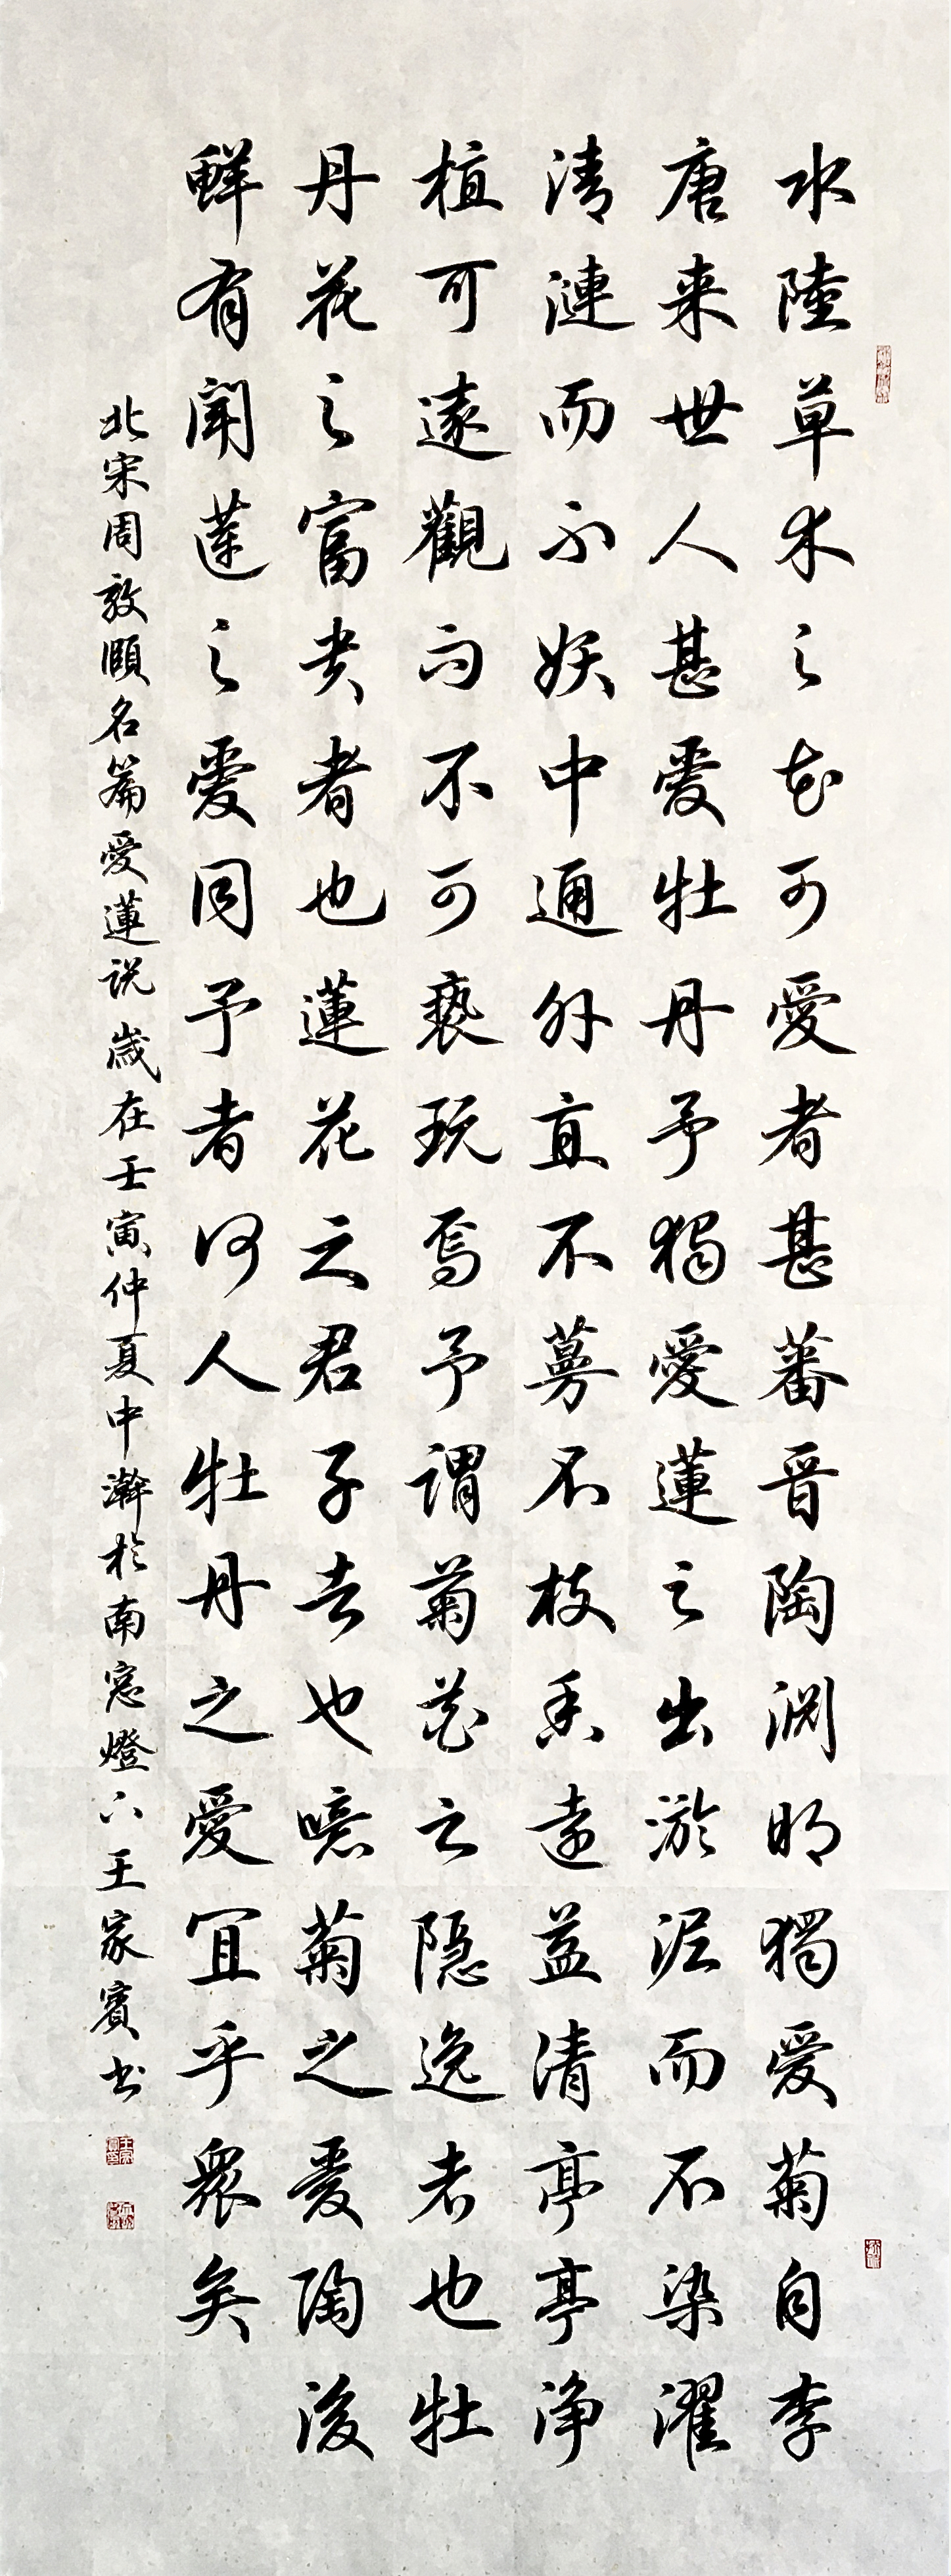 水陸草木之花可愛者甚蕃晋陶渊明獨爱菊自李
唐来世人甚愛牡丹予獨愛蓮之出淤泥而不染濯
清漣而不妖中通外直不蔓不枝香遠益清亭亭净
植可遠觀而不可亵玩焉予謂菊花之隠逸者也牡
丹花之富贵者也蓮花之君子者也噫菊之爱陶後
鮮有聞莲之愛同予者何人牡丹之愛宜乎眾矣
北宋周敦頤名篇愛蓮説歲在壬寅仲夏中澣於南窓燈下王家賓书